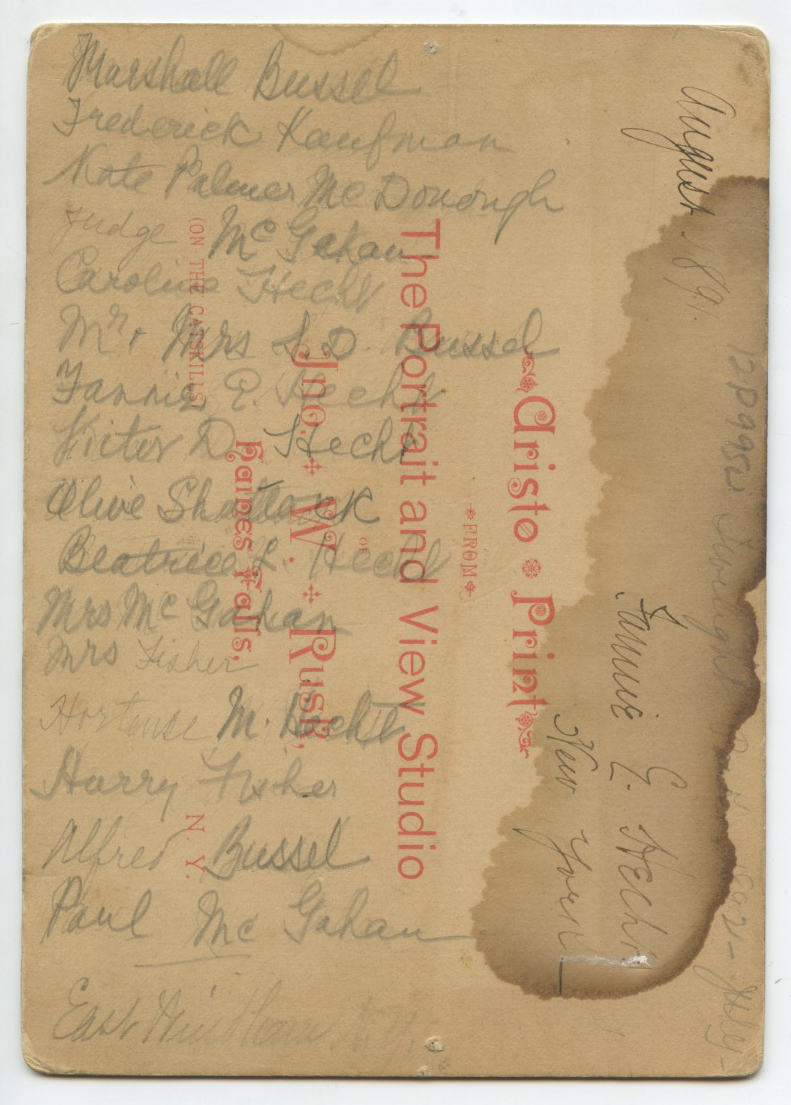 Marshall Bussel
Frederick Kaufman
Kate Palmer McDonough
Judge McGahan
Caroline Hecht
Mr & Mrs S. D. Bussel
Fannie E. Hecht
Victor D. Hecht
Olive Shattuck
Beatrice L. Hecht
Mrs McGahan
Mrs Fisher
Hortense M. Hecht
Harry Fisher
Alfred Bussel
Paul McGahan
East Windham N.Y.
Aristo Print
FROM
The Portrait and View Studio
OF
Jno. W. Rusk,
Haines Falls,
(ON THE CATSKILLS)
N. Y.
August 189.
Fannie E. Hecht
New York
1892 - July -